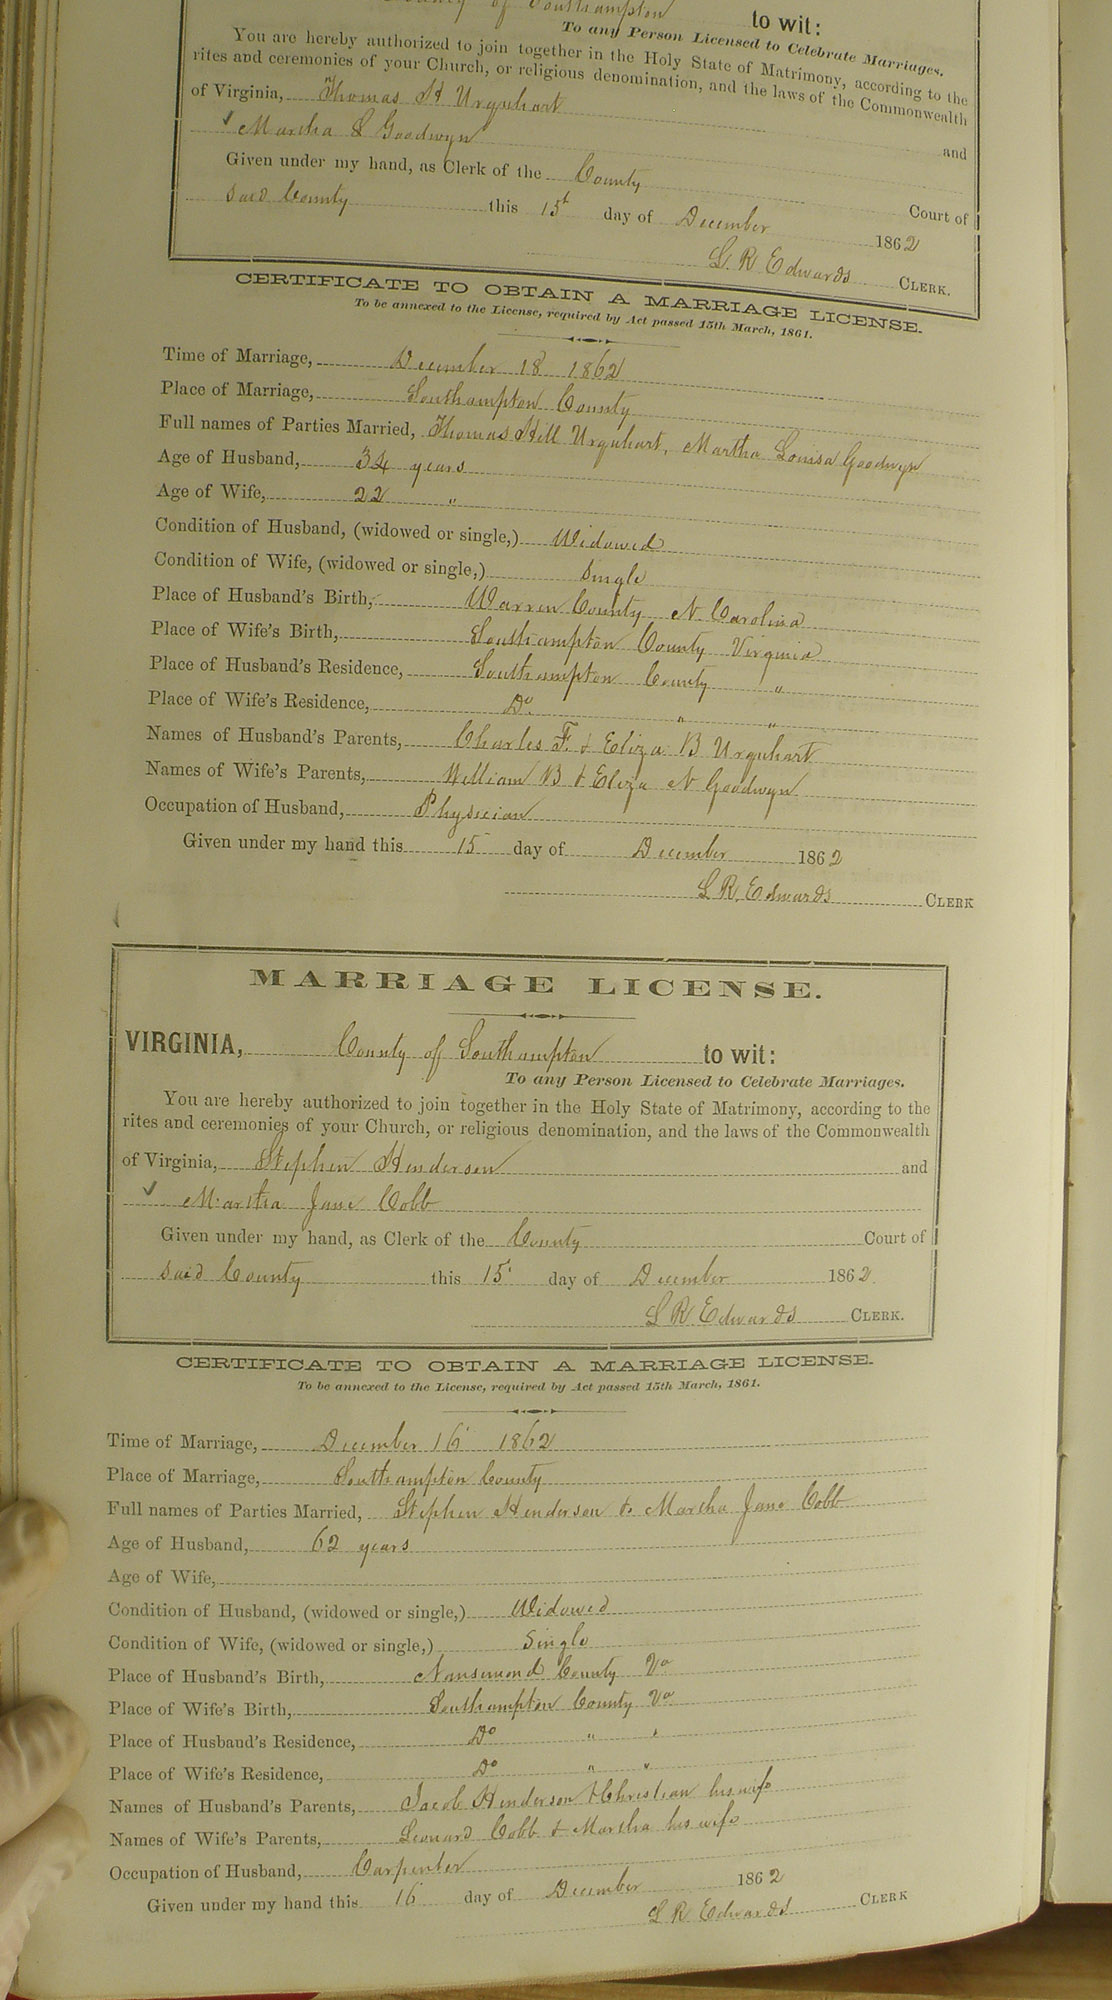 County of Southampton to wit:
To any Person Licensed to Celebrate Marriages.
You are hereby authorized to join together in the Holy State of Matrimony, according to the
rites and ceremonies of your Church, or religious denomination, and the laws of the Commonwealth
of Virginia, Thomas H Urquhart and
Martha L Goodwyn
Given under my hand, as Clerk of the County Court of
said County this 15t day of December 1862
L. R Edwards CLERK.
CERTIFICATE TO OBTAIN A MARRIAGE LICENSE.
To be annexed to the License, required by Act passed 15th March, 1861.
Time of Marriage, December 18 1862
Place of Marriage, Southampton County
Full names of Parties Married, Thomas Hill Urquhart, Martha Louisa Goodwyn
Age of Husband, 34 years
Age of Wife, 22 "
Condition of Husband, (widowed or single,) Widowed
Condition of Wife, (widowed or single,) Single
Place of Husband's Birth, Warren County N Carolina
Place of Wife's Birth, Southampton County Virginia
Place of Husband's Residence, Southampton County "
Place of Wife's Residence, Do " "
Names of Husband's Parents, Charles F. & Eliza B Urquhart
Names of Wife's Parents, William B & Eliza N Goodwyn
Occupation of Husband, Physician
Given under my hand this 15 day of December 1862
L R. Edwards CLERK
MARRIAGE LICENSE.
VIRGINIA, County of Southampton to wit:
To any Person Licensed to Celebrate Marriages.
You are hereby authorized to join together in the Holy State of Matrimony, according to the
rites and ceremonies of your Church, or religious denomination, and the laws of the Commonwealth
of Virginia, Stephen Henderson and
Martha Jane Cobb
Given under my hand, as Clerk of the County Court of
said County this 15 day of December 1862.
L R Edwards CLERK.
CERTIFICATE TO OBTAIN A MARRIAGE LICENSE.
To be annexed to the License, required by Act passed 15th March, 1861.
Time of Marriage, December 16 1862
Place of Marriage, Southampton County
Full names of Parties Married, Stephen Henderson & Martha Jane Cobb
Age of Husband, 62 years
Age of Wife,
Condition of Husband, (widowed or single,) Widowed
Condition of Wife, (widowed or single,) Single
Place of Husband's Birth, Nansemond County Va
Place of Wife's Birth, Southampton County Va
Place of Husband's Residence, Do " "
Place of Wife's Residence, Do " "
Names of Husband's Parents, Jacob Henderson & Christian his wife
Names of Wife's Parents, Leonard Cobb & Martha his wife
Occupation of Husband, Carpenter
Given under my hand this 16 day of December 1862
L R Edwards CLERK